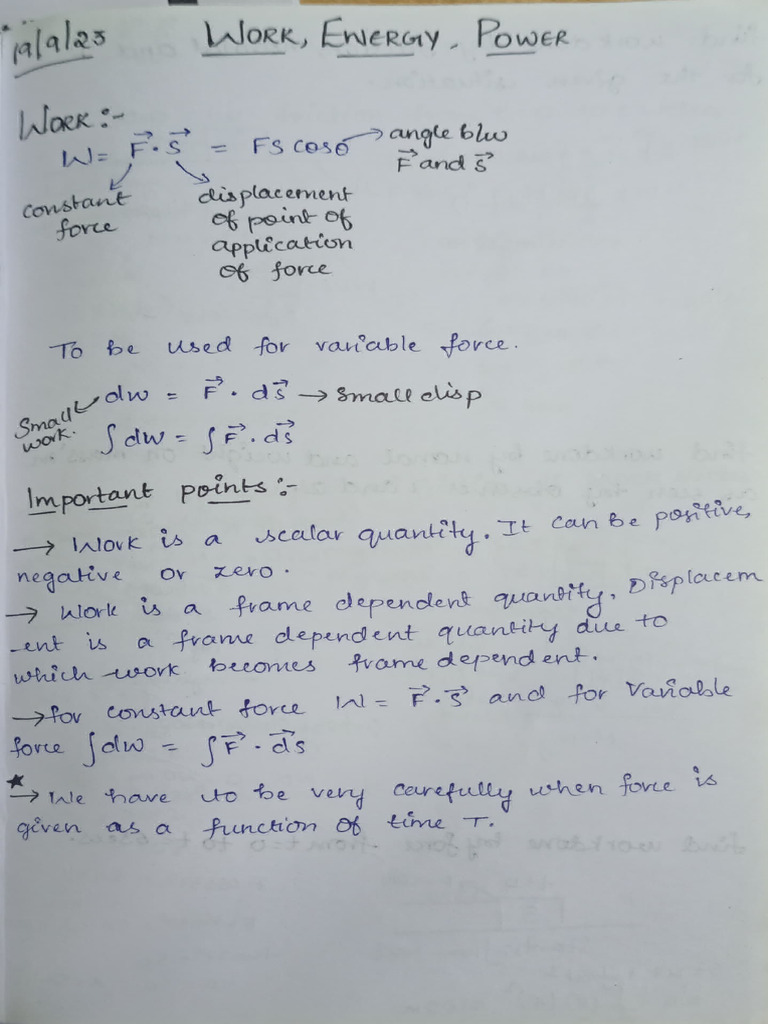 19/9/23 WORK, ENERGY, POWER
WORK :-
W = F⃗ · S⃗ = FS cosθ → angle b/w
F⃗ and S⃗
constant
force
displacement
of point of
application
of force
To be used for variable force.
dw = F⃗ · dS⃗ → small disp
small
work.
∫dw = ∫F⃗ · dS⃗
Important points :-
→ Work is a scalar quantity. It can be positive,
negative or zero.
→ Work is a frame dependent quantity. Displacem
-ent is a frame dependent quantity due to
which work becomes frame dependent.
→ for constant force W = F⃗ · S⃗ and for variable
force ∫dw = ∫F⃗ · dS⃗
★
→ We have to be very carefully when force is
given as a function of time T.